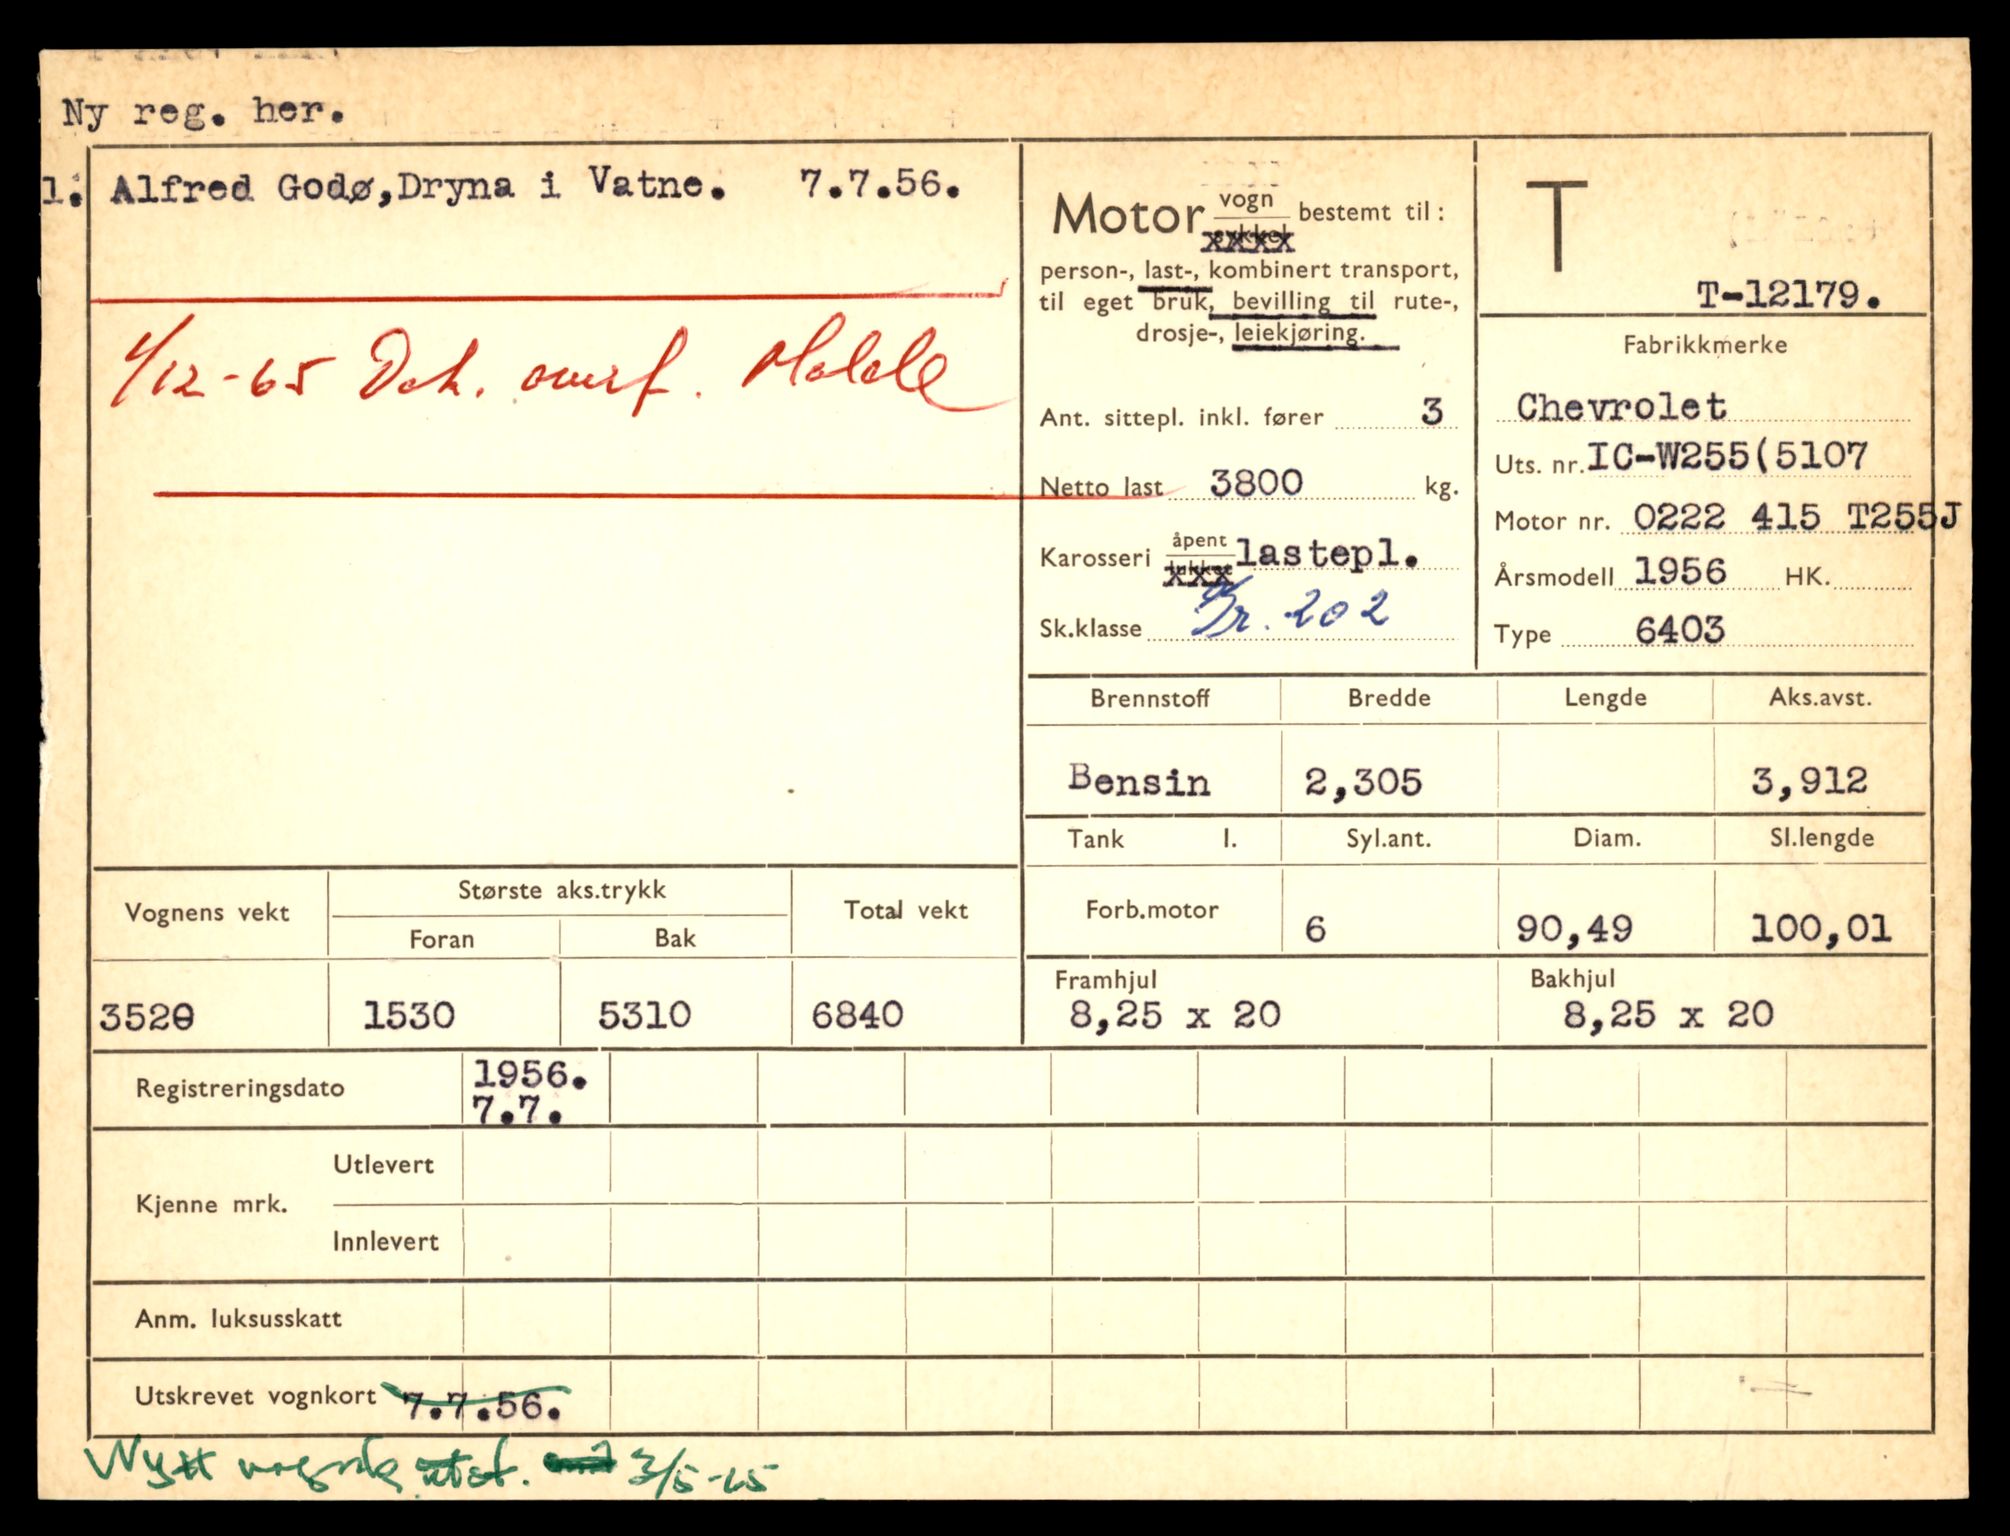 Ny reg. her.
1. Alfred Godø,Dryna i Vatne. 7.7.56.
4/12-65 Dok. overf. Molde
Motor vogn bestemt til:
person-, last-, kombinert transport,
til eget bruk, bevilling til rute-,
drosje-, leiekjøring.
Ant. sittepl. inkl. fører 3
Netto last 3800 kg.
Karosseri åpent lukket lastepl.
Sk.klasse Gr. 202
T
T-12179.
Fabrikkmerke
Chevrolet
Uts. nr. IC-W255(5107
Motor nr. 0222 415 T255J
Årsmodell 1956 HK.
Type 6403
Brennstoff Bredde Lengde Aks.avst.
Bensin 2,305 3,912
Tank l. Syl.ant. Diam. Sl.lengde
Forb.motor 6 90,49 100,01
Framhjul Bakhjul
8,25 x 20 8,25 x 20
Vognens vekt Største aks.trykk Total vekt
Foran Bak
3520 1530 5310 6840
Registreringsdato 1956.
7.7.
Utlevert
Kjenne mrk.
Innlevert
Anm. luksusskatt
Utskrevet vognkort 7.7.56.
Nytt vognk utst. 3/5-65